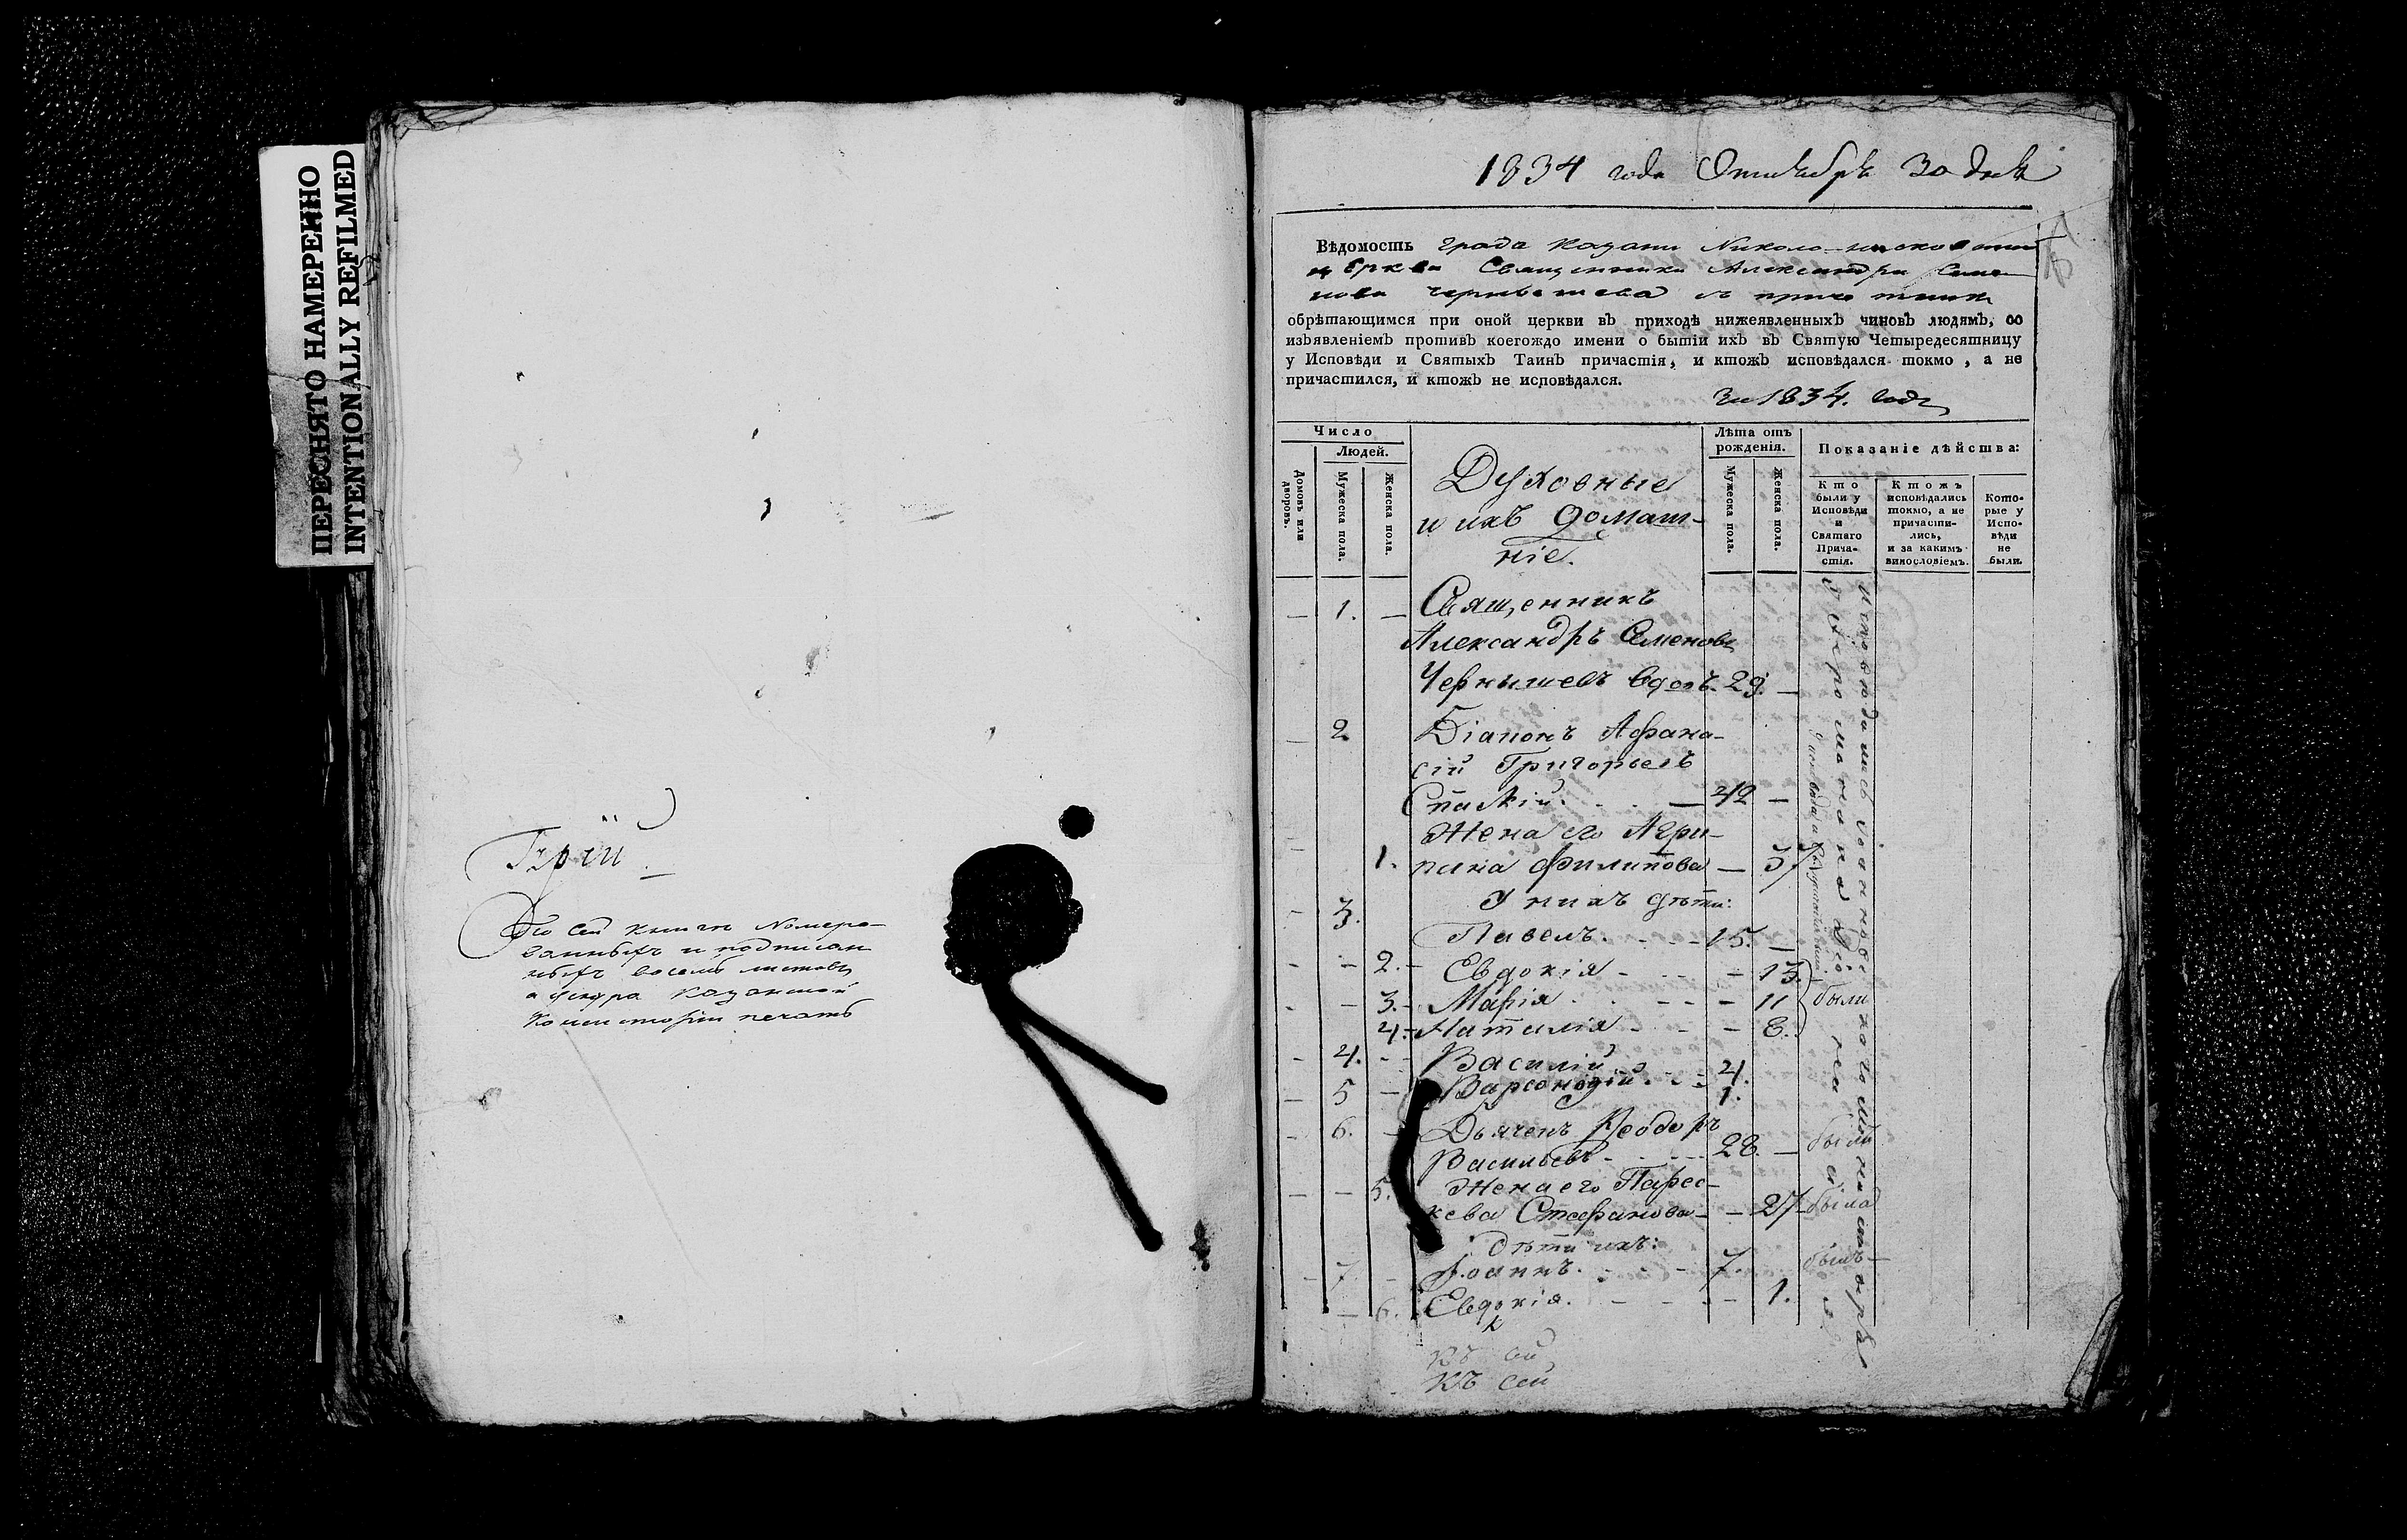 ПЕРЕСНЯТО НАМЕРЕННО
INTENTIONALLY REFILMED
сей книгѣ Номеро-
ванныхъ и подписан
ныхъ восемь листовъ
Казанской
Консисторіи печать
1834 года Октября 30 дня
Вѣдомость града Казани Николо-
церкви Священника Александра Семе-
нова Чернышева съ причтомъ
обрѣтающимся при оной церкви въ приходѣ нижеявленныхъ чиновъ людямъ, со
изъявленіемъ противъ коегождо имени о бытіи ихъ въ Святую Четыредесятницу
у Исповѣди и Святыхъ Таинъ причастія, и ктожъ исповѣдался токмо, а не
причастился, и ктожъ не исповѣдался.
за 1834. годъ
Число
Людей.
Домовъ или дворовъ.
Мужеска пола.
Женска пола.
Духовные
и ихъ домаш-
ніе.
Лѣта отъ
рожденія.
Мужеска пола.
Женска пола.
Показаніе дѣйства:
Кто
были у
Исповѣди
и
Святаго
Прича-
стія.
Ктожъ
исповѣдались
токмо, а не
причасти-
лись,
и за какимъ
винословіемъ.
Кото-
рые у
Испо-
вѣди
не
были.
— 1. — Священникъ
Александръ Семеновъ
Чернышевъ вдовъ. 29. —
— 2 Діаконъ Афана-
сій Григорьевъ
Спаскій. — 42 —
— Жена его Агри-
1. пина Филипова — 37
У нихъ дѣти:
— 3. Павелъ. 15. —
— — 2. — Евдокія — 13.
— — 3. — Марія — 11 были
4. — Наталія — 8.
— 4. — Василій 4.
— 5 — Варсонофій 1.
— 6. — Дьячекъ Ѳеодоръ
Васильевъ 28. — былъ
— — 5. Жена его Парас-
кева Стефанова — — 27 — была
Дѣти ихъ:
— 7. — Іоаннъ. 7. былъ —
— 6. Евдокія. — 1.
къ сей
къ сей